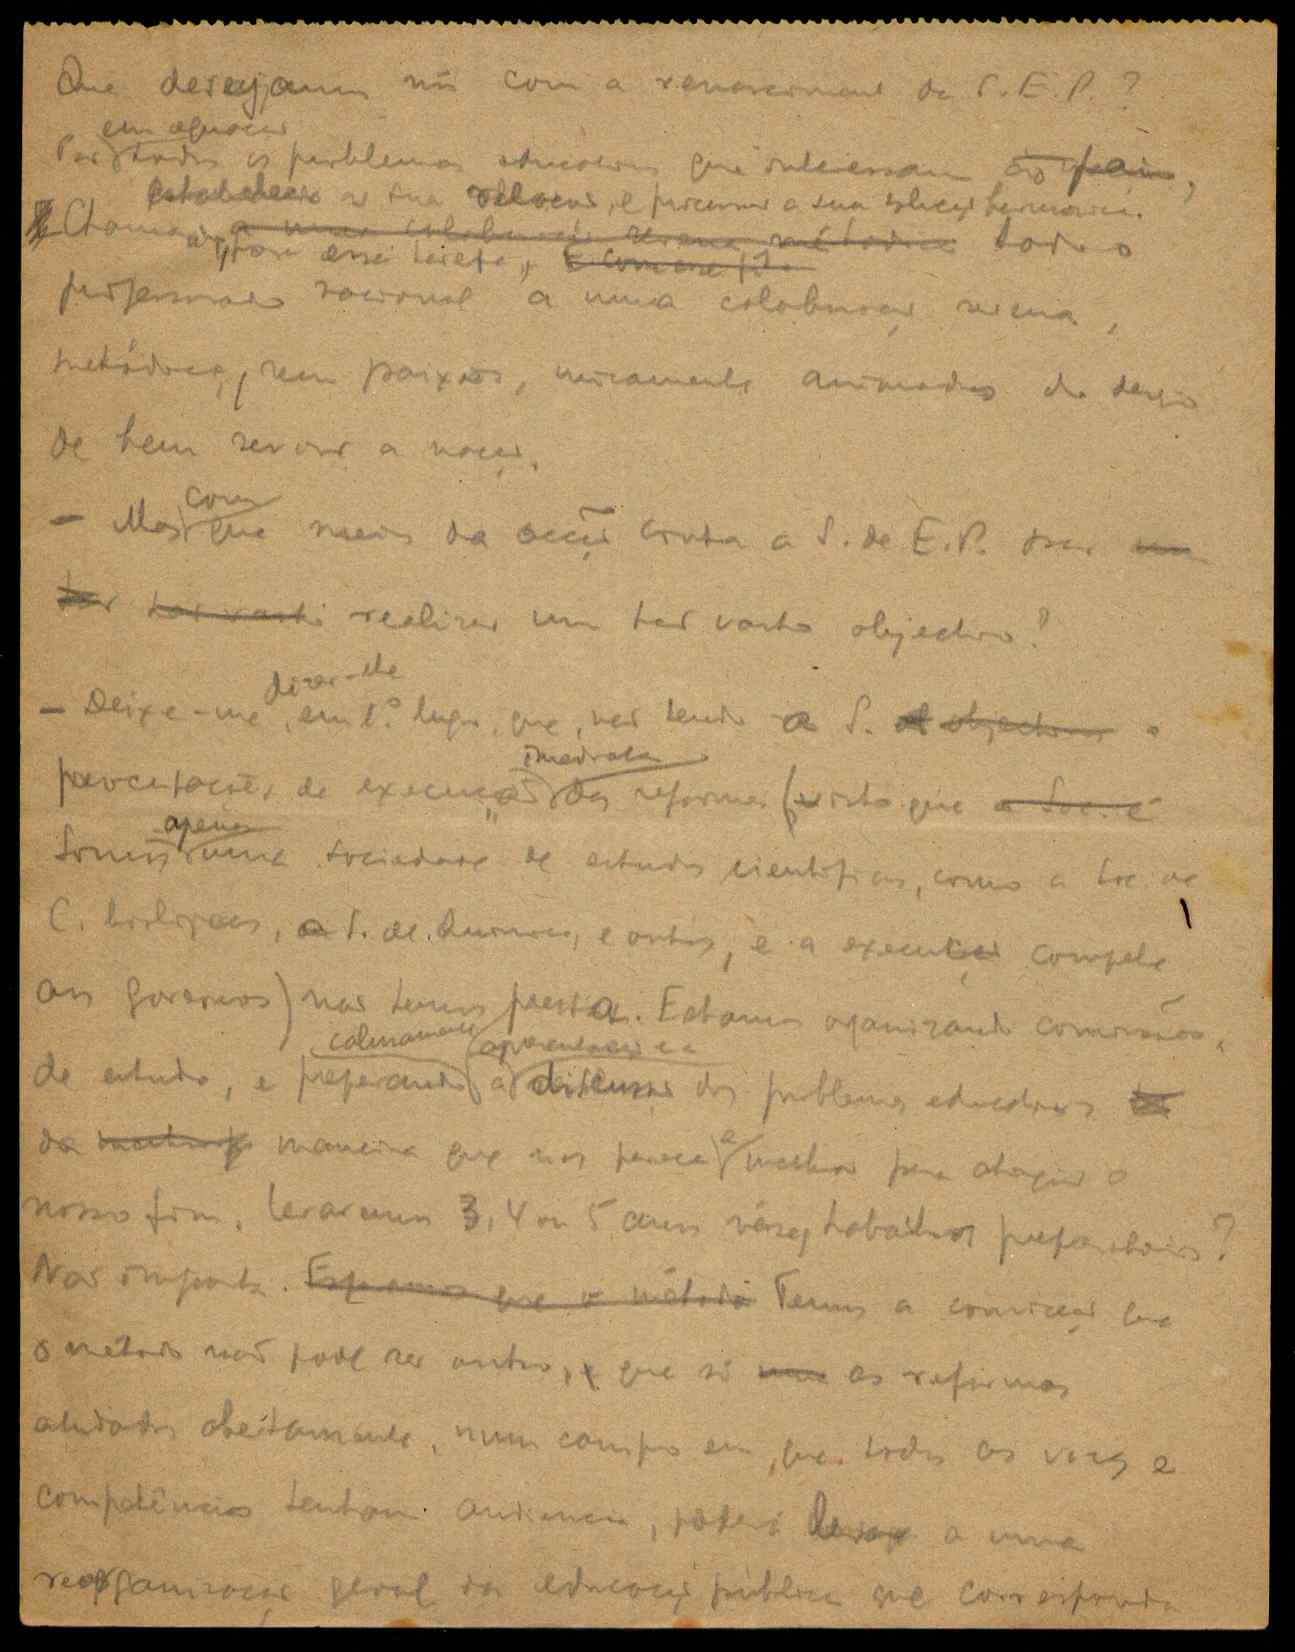 Que desejamos nós com o renascimento da S. E. P.?
em equação
Pôr todos os problemas educativos que interessam ao país,
estabelecer a sua relação, e procurar a sua solução harmónica.
Chamar a uma colaboração serena metódica todo o
para essa tarefa,
professorado nacional a uma colaboração serena,
metódica, sem paixões, unicamente animados do desejo
de bem servir a nação.
com
– Mas que meios de acção conta a S. de E. P. para
tão vasto realizar um tão vasto objectivo?
dizer-lhe
– Deixe-me, em 1.º lugar, que, não tendo a S. objectivos a
imediata
preocupação de execução das reformas (visto que a Soc. é
apenas
somos uma sociedade de estudos científicos, como a Soc. de
C. biológicas, a S. de Química, e outras, e a execução compete
aos governos) não temos pressa. Estamos organizando comissões
calmamente apresentação e a
de estudo, e preparando a discussão dos problemas educativos
da maneira que nos parece a melhor para atingir o
nosso fim. Levaremos 3, 4 ou 5 anos nesses trabalhos preparatórios?
Não importa. Esperamos que o método Temos a convicção que
o método não pode ser outro, e que só as reformas
estudadas abertamente, num campo em que todas as vozes e
competências tenham audiência, poderá levar a uma
reorganização geral da educação pública que corresponda